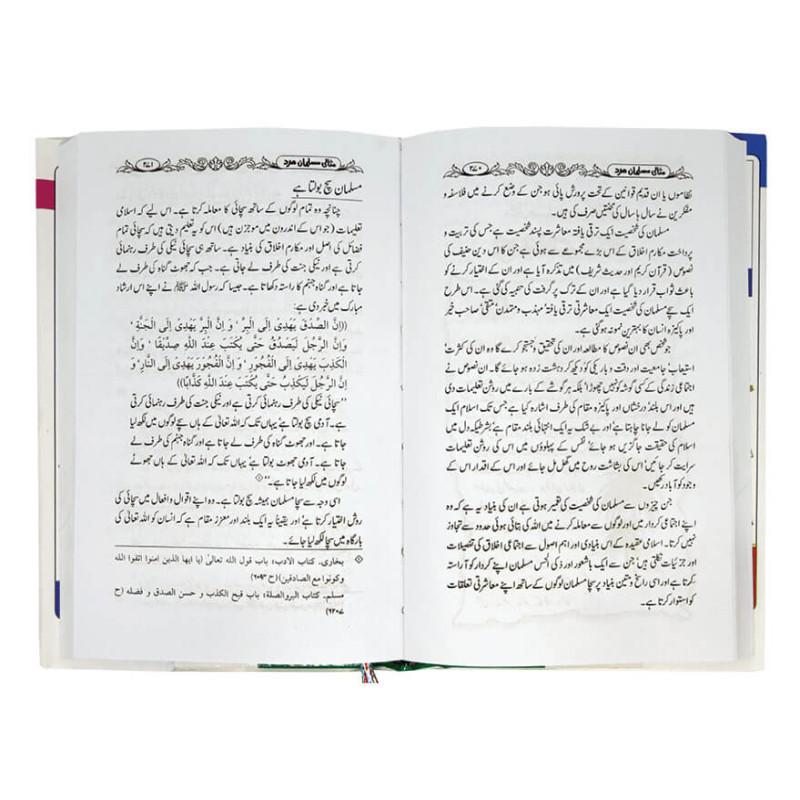 مثالی مسلمان مرد ۲۷۰
نظاموں یا ان قدیم قوانین کے تحت پرورش پائی ہو جن کے وضع کرنے میں فلاسفہ و
مفکرین نے سال ہا سال کی محنتیں صرف کی ہیں۔
مسلمان کی شخصیت ایک ترقی یافتہ معاشرت پسند شخصیت ہے جس کی تربیت و
پرداخت مکارم اخلاق کے اس بڑے مجموعے سے ہوئی ہے جن کا اس دین حنیف کی
نصوص (قرآن کریم اور حدیث شریف) میں تذکرہ آیا ہے اور ان کے اختیار کرنے کو
باعث ثواب قرار دیا گیا ہے اور ان کے ترک پر گرفت کی تنبیہ کی گئی ہے۔ اس طرح
ایک سچے مسلمان کی شخصیت ایک معاشرتی ترقی یافتہ' مہذب و متمدن' متقی' صاحب خیر
اور پاکیزہ انسان کا بہترین نمونہ ہو گئی ہے۔
جو شخص بھی ان نصوص کا مطالعہ اور ان کی تحقیق و جستجو کرے گا وہ ان کی کثرت'
استیعاب' جامعیت اور دقت و باریکی کو دیکھ کر دہشت زدہ ہو جائے گا۔ ان نصوص نے
اجتماعی زندگی کے کسی گوشہ کو نہیں چھوڑا' بلکہ ہر گوشے کے بارے میں روشن تعلیمات دی
ہیں اور اس بلند' درخشاں اور پاکیزہ مقام کی طرف اشارہ کیا ہے جس تک اسلام
مسلمان کو لے جانا چاہتا ہے' اور بے شک یہ ایک انتہائی بلند مقام ہے' بشرطیکہ دل میں
اسلام کی حقیقت جاگزیں ہو جائے' نفس کے پہلوؤں میں اس کی روشن تعلیمات
سرایت کر جائیں' اس کی بشاشت روح میں گھل مل جائے اور اس کے اقدار اس کے
وجود کو آباد رکھیں۔
جن چیزوں سے مسلمان کی شخصیت کی تعمیر ہوتی ہے ان کی بنیاد یہ ہے کہ وہ
اپنے اجتماعی کردار میں اور لوگوں سے معاملہ کرنے میں اللہ کی بتائی ہوئی حدود سے تجاوز
نہیں کرتا۔ اسلامی عقیدہ کے اس بنیادی اور اہم اصول سے اجتماعی اخلاق کی تفصیلات
اور جزئیات نکلتی ہیں' جن سے ایک باشعور اور ذکی الحس مسلمان اپنے کردار کو آراستہ
کرتا ہے اور اسی راسخ و متین بنیاد پر سچا مسلمان لوگوں کے ساتھ اپنے معاشرتی تعلقات
کو استوار کرتا ہے۔
مثالی مسلمان مرد ۲۷۱
مسلمان سچ بولتا ہے
چنانچہ وہ تمام لوگوں کے ساتھ سچائی کا معاملہ کرتا ہے۔ اس لیے کہ اسلامی
تعلیمات (جو اس کے اندرون میں موجزن ہیں) اس کو یہ تعلیم دیتی ہیں کہ سچائی تمام
فضائل کی اصل اور مکارم اخلاق کی بنیاد ہے۔ ساتھ ہی سچائی نیکی کی طرف رہنمائی
کرتی ہے اور نیکی جنت کی طرف لے جاتی ہے۔ جب کہ جھوٹ گناہ کی طرف لے
جاتا ہے اور گناہ جہنم کا راستہ دکھاتا ہے۔ جیسا کہ رسول اللہ ﷺ نے اپنے اس ارشاد
مبارک میں خبر دی ہے:
((إِنَّ الصِّدْقَ يَهْدِىْ إِلَى الْبِرِّ' وَ إِنَّ الْبِرَّ يَهْدِىْ إِلَى الْجَنَّةِ'
وَإِنَّ الرَّجُلَ لَيَصْدُقُ حَتَّى يُكْتَبَ عِنْدَ اللَّهِ صِدِّيْقًا' وَإِنَّ
الْكَذِبَ يَهْدِىْ إِلَى الْفُجُوْرِ' وَ إِنَّ الْفُجُوْرَ يَهْدِىْ إِلَى النَّارِ' وَ
إِنَّ الرَّجُلَ لَيَكْذِبُ حَتَّى يُكْتَبَ عِنْدَ اللَّهِ كَذَّابًا))
"سچائی نیکی کی طرف رہنمائی کرتی ہے اور نیکی جنت کی طرف رہنمائی کرتی
ہے۔ آدمی سچ بولتا ہے' یہاں تک کہ اللہ تعالیٰ کے ہاں سچے لوگوں میں لکھ لیا
جاتا ہے۔ اور جھوٹ گناہ کی طرف لے جاتا ہے اور گناہ جہنم کی طرف لے
جاتا ہے۔ آدمی جھوٹ بولتا ہے' یہاں تک کہ اللہ تعالیٰ کے ہاں جھوٹے
لوگوں میں لکھ لیا جاتا ہے۔"
اسی وجہ سے سچا مسلمان ہمیشہ سچ بولتا ہے۔ وہ اپنے اقوال و افعال میں سچائی کی
روش اختیار کرتا ہے' اور یقیناً یہ ایک بلند اور معزز مقام ہے کہ انسان کو اللہ تعالیٰ کی
بارگاہ میں سچا لکھ لیا جائے۔
بخاری۔ کتاب الادب: باب قول الله تعالیٰ (یا ایها الذین امنوا اتقوا الله
وکونوا مع الصادقین) (ح ۶۰۹۴)
مسلم۔ کتاب البروالصلة: باب قبح الکذب و حسن الصدق و فضله (ح
۲۶۰۷)